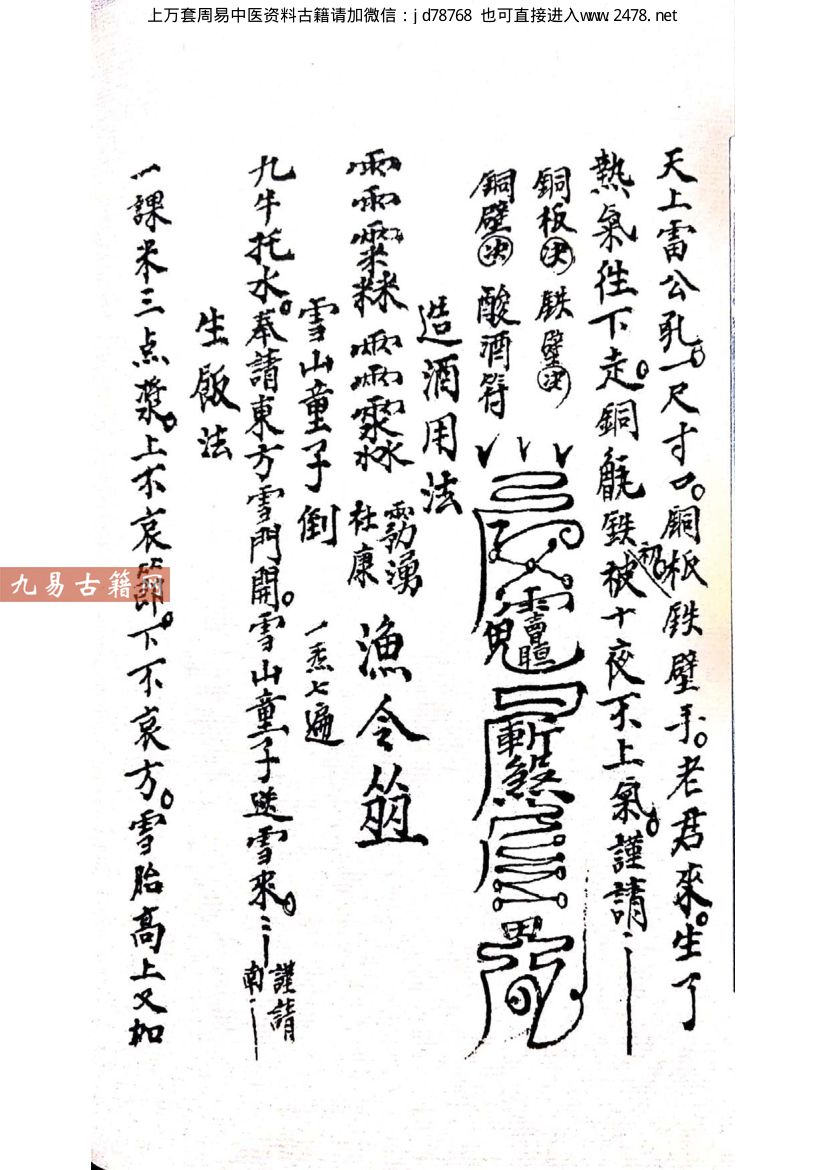 上万套周易中医资料古籍请加微信：jd78768 也可直接进入www.2478.net
天上雷公乳。一尺寸口。銅板鉄壁手。老君來。生了
熱氣徃下走。銅毹鉄被十夜不上氣。謹請
初
銅板决 鉄壁决
銅壁决 酸酒符
賣
斬煞
造酒用法
湧
杜康 漁令
雪山童子倒 一煮七遍
九牛托水。奉請東方雪門開。雪山童子送雪來。
謹請
南
生飯法
一課米三点漿。上不哀 下不哀方。雪胎高上又加
九易古籍网